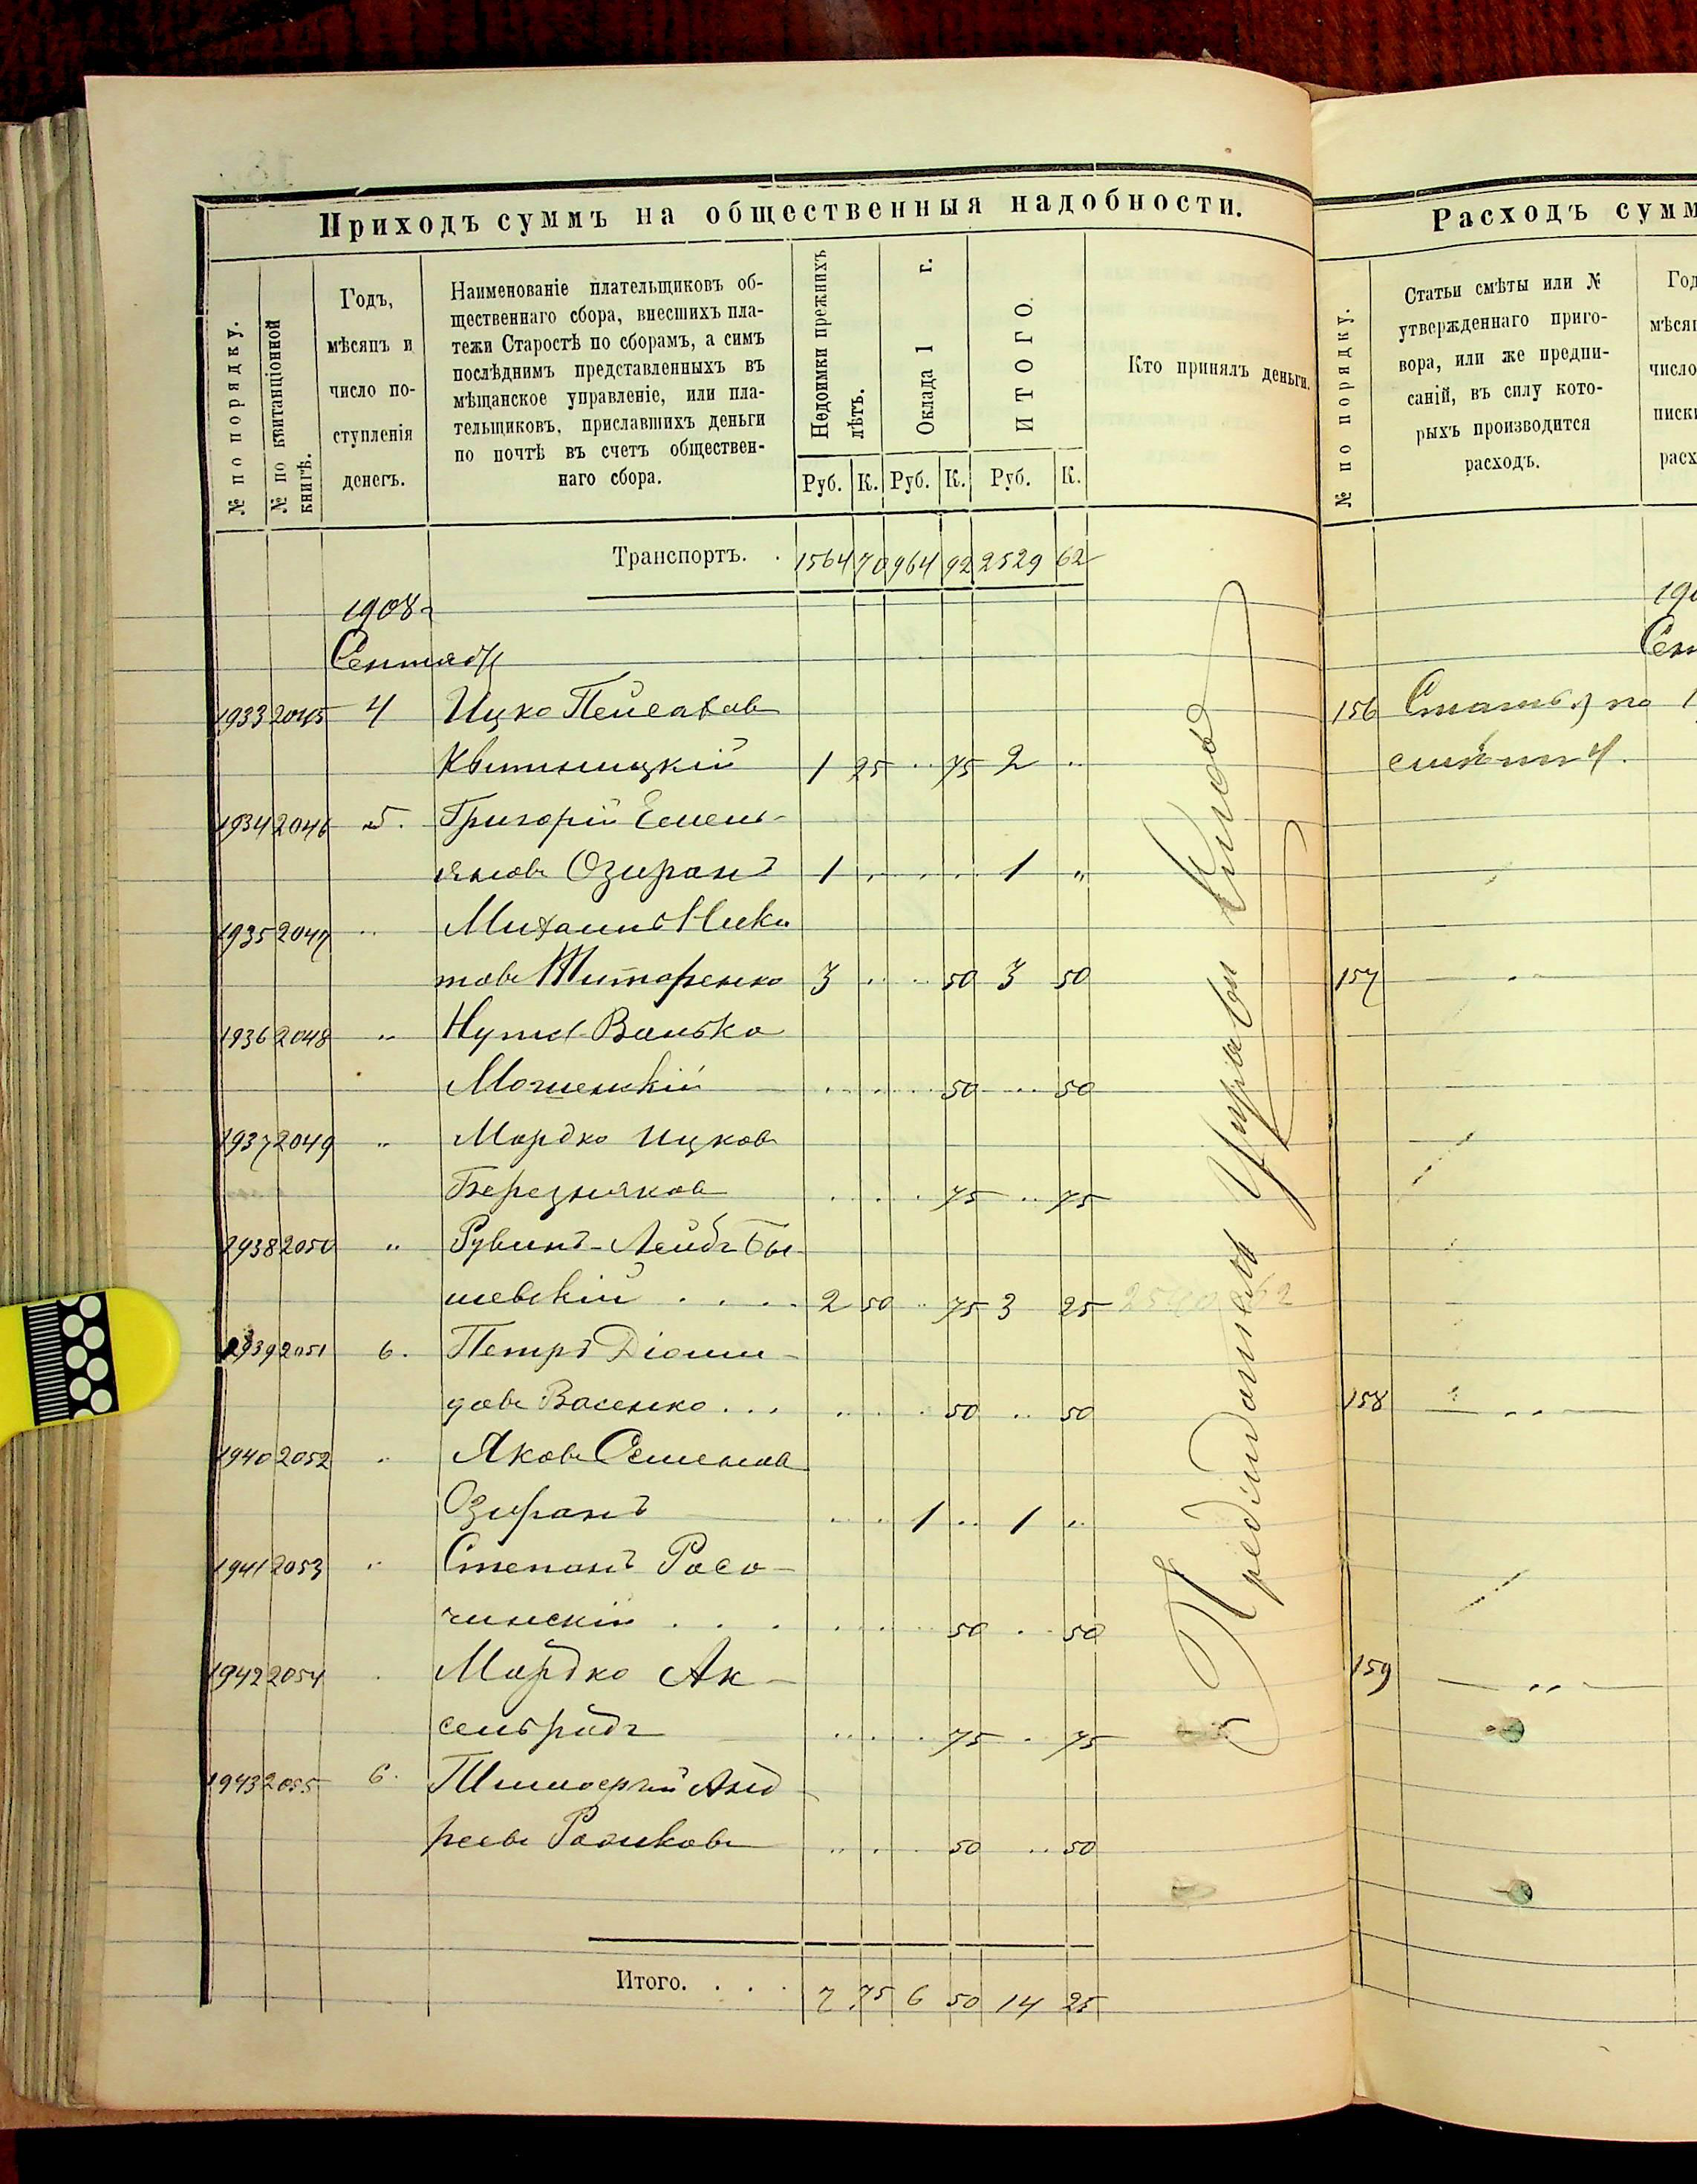 Приходъ суммъ на общественныя надобности.
№ по порядку.
№ по квитанціонной
книгѣ.
Годъ,
мѣсяцъ и
число по-
ступленія
денегъ.
Наименованіе плательщиковъ об-
щественнаго сбора, внесшихъ пла-
тежи Старостѣ по сборамъ, а симъ
послѣднимъ представленныхъ въ
мѣщанское управленіе, или пла-
тельщиковъ, приславшихъ деньги
по почтѣ въ счетъ обществен-
наго сбора.
Недоимки прежнихъ
лѣтъ.
Оклада 1 г.
ИТОГО.
Руб. К. Руб. К. Руб. К.
Кто принялъ деньги.
Транспортъ. . 1564 70 964 92 2529 62
1908 г
Сентябр
1933 2045 4 Ицко Пейсахов
Квитницкій 1 25 .. 75 2 ..
1934 2046 5. Григорій Емель-
яновъ Озиранъ 1 .. .. .. 1 "
1935 2047 .. Михаилъ Ники
товъ Титаренко 3 .. .. 50 3 50
1936 2048 .. Нута-Волько
Могилевскій .. .. .. 50 .. 50
1937 2049 .. Мордко Ицков
Березняков .. .. .. 75 .. 75
1938 2050 .. Рувинъ-Лейбъ Бы-
шевскій . . . . 2 50 .. 75 3 25
2540 62
1939 2051 6. Петръ Діоми-
довъ Васенко . . . .. .. . 50 .. 50
1940 2052 .. Яковъ Семенов
Озиранъ .. . 1 .. 1 ..
1941 2053 .. Степанъ Росо-
чинскій . . . . .. .. 50 . 50
1942 2054 . Мордко Ак-
сельрудъ .. .. . 75 . 75
1943 2055 6. Тимофей Анд
реевъ Роликовъ .. . . 50 .. 50
Итого. . . . 7 75 6 50 14 25
Предсѣдатель Управы
Расходъ сумм
№ по порядку.
Статьи смѣты или №
утвержденнаго приго-
вора, или же предпи-
саній, въ силу кото-
рыхъ производится
расходъ.
Год
мѣсяц
число
писк
расх
190
Сен
156 Статья по 1
157 — .. —
158 — .. —
159 — ,, —